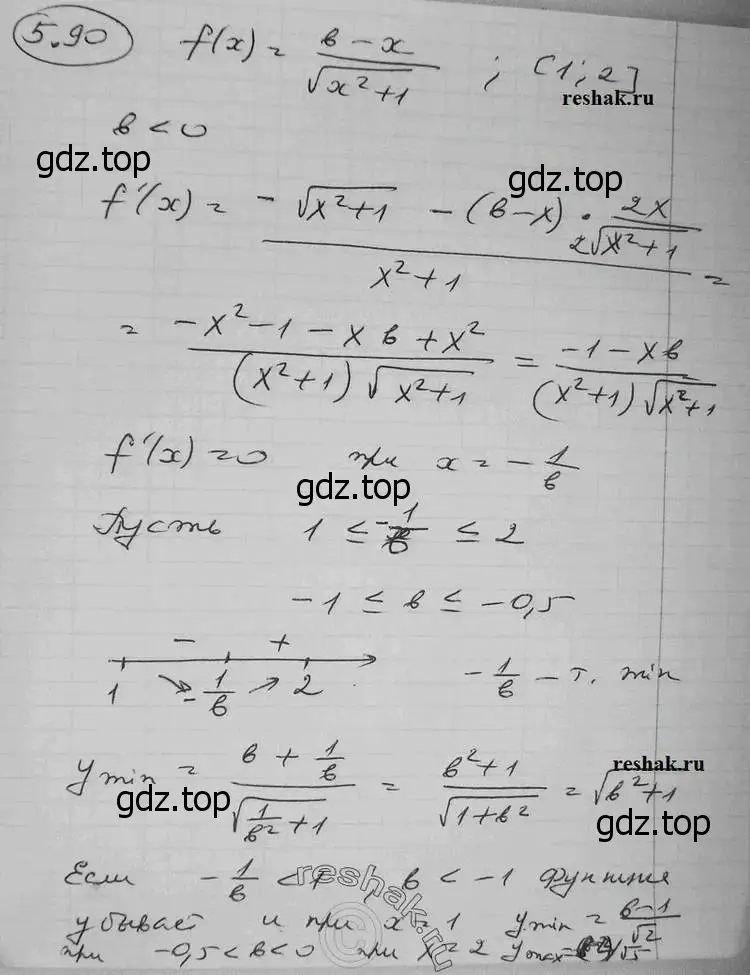 5.90 f(x) = (в - x)/√(x²+1) ; [1; 2]
reshak.ru
в < 0
gdz.top
gdz.top
f'(x) = (-√(x²+1) - (в-x) · 2x/(2√(x²+1)))/(x²+1) =
= (-x² - 1 - xв + x²)/((x²+1)√(x²+1)) = (-1 - xв)/((x²+1)√(x²+1))
f'(x) = 0 при x = -1/в
gdz.top
Пусть 1 ≤ -1/в ≤ 2
-1 ≤ в ≤ -0,5
- +
1 -1/в 2 -1/в - т. min
reshak.ru
y min = (в + 1/в)/√(1/в² + 1) = (в²+1)/√(1+в²) = √(в²+1)
gdz.top
gdz.top
Если -1/в < 1, в < -1 функция
reshak.ru
убывает и при x = 1 y min = (в-1)/√2
при -0,5 < в < 0 при x = 2 y max =